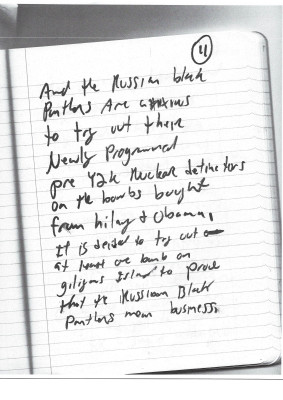 4
And the Russian black
Panthers Are anxious
to try out there
Newly Programed
pre Y2k Nuclear detinators
on the bombs bought
from hilary & Obama,
It is desided to try out
at least one bomb on
giligans Island to prove
that the Russian Black
Panthers mean business